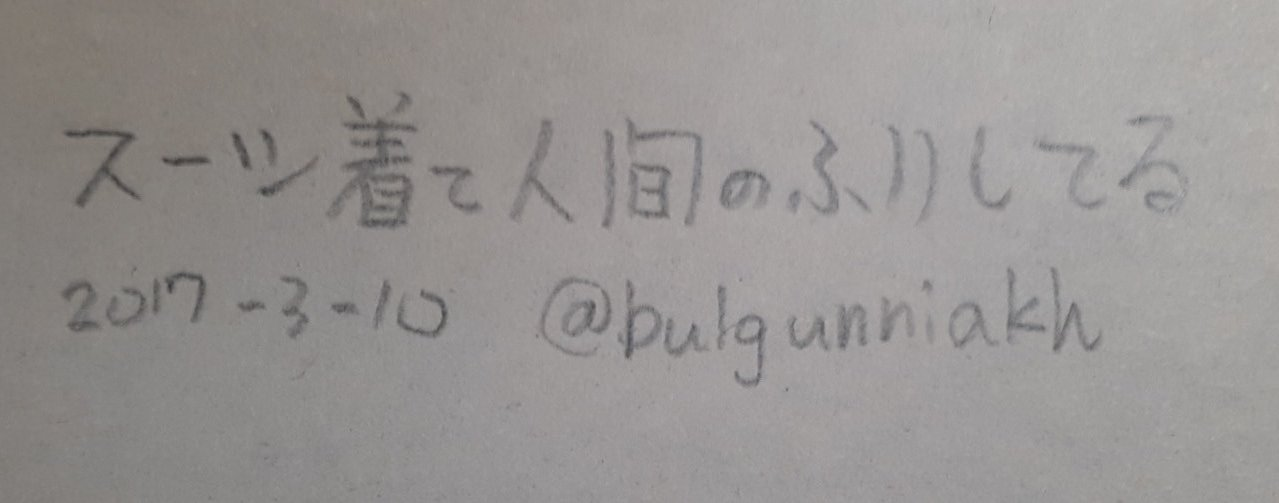 スーツ着て人間のふりしてる
2017-3-10 @bulgunniakh